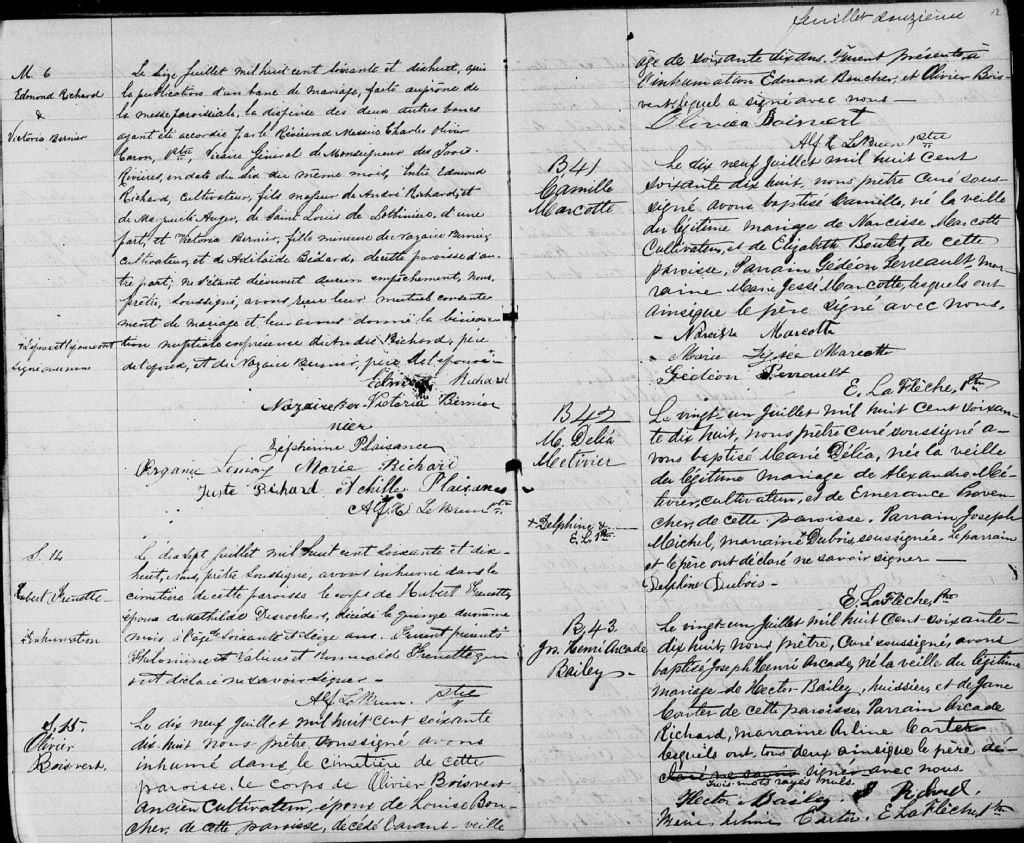 M. 6
Edmond Richard
&
Victoria Bernier
Le Seize Juillet mil huit cent soixante et dixhuit, après
la publication d'un banc de mariage, faite au prone de
la messe paroissiale, la dispense des deux autres bancs
ayant été accordée par le Révérend Messire Charles Olivier
Caron, Ptre, Vicaire Général de Monseigneur des Trois-
Rivières, en date du Six du même mois, Entre Edmond
Richard, cultivateur, fils majeur de André Richard, et
de Marguerite Auger, de Saint Louis de Lotbinière, d'une
part; et Victoria Bernier, fille mineure de Nazaire Bernier,
cultivateur, et de Adélaide Bédard, de cette paroisse d'au-
tre part; ne s'étant découvert aucun empêchement, Nous,
prêtre, soussigné, avons reçu leur mutuel consente
ment de mariage et leur avons donné la bénédic-
tion nuptiale en présence de André Richard, père
de l'époux, et de Nazaire Bernier, père de l'épouse
signé avec nous
Edmond Richard
Nazaire Ber- Victoria Bernier
nier
Zéphirine Plaisance
Lemay Marie Richard
Juste Richard Achille Plaisance
Alf. H. LeBrun Ptre
S. 14
Hubert Frenette
+ Inhumation
Le dix sept Juillet mil huit cent soixante et dix-
huit, nous, prêtre soussigné, avons inhumé dans le
cimetière de cette paroisse le corps de Hubert Frenette,
époux de Mathilde Desrochers, décédé le quinze du même
mois à l'âge de soixante et seize ans. Furent présents
Philomène et Romuald Frenette qui
ont déclaré ne savoir signer -
Alf. LeBrun. Ptre
S. 15.
Olivier
Boisvert.
Le dix neuf Juillet mil huit cent soixante
dix huit nous prêtre soussigné avons
inhumé dans le cimetière de cette
paroisse, le corps de Olivier Boisvert
ancien Cultivateur, époux de Louise Bou-
cher, de cette paroisse, décédé l'avant-veille
feuillet douzième
12
âgé de soixante dix ans. Furent présents à
l'inhumation Edouard Boucher, et Olivier Bois-
vert, lequel a signé avec nous -
Olivier Boisvert
Alf. H. LeBrun Ptre
B 41
Camille
Marcotte
Le dix neuf Juillet mil huit cent
soixante dix huit, nous prêtre curé sous-
signé avons baptisé Camille, né la veille
du légitime mariage de Narcisse Marcotte
Cultivateur, et de Elizabeth Boutet, de cette
paroisse, Parrain Gédéon Perreault, mar-
raine Marie Marcotte, lesquels ont
ainsique le père signé avec nous,
- Narcisse Marcotte
- Marie Marcotte
Gédéon Perrault
E. LaFlèche, Ptre
B 42
M. Délia
Metivier
+ Delphine &
E. L. Ptre.
Le vingt un Juillet mil huit cent soixan-
te dix huit, nous prêtre curé soussigné a-
vons baptisé Marie Délia, née la veille
du légitime mariage de Alexandre Mé-
tivier, cultivateur, et de Emerance Proven-
cher, de cette paroisse. Parrain Joseph
Michel, marraine + Dubois, soussignée. Le parrain
et le père ont déclaré ne savoir signer -
Delphine Dubois -
E. LaFlèche, Ptre
B. 43.
Jos. Henri Arcade
Bailey -
Le vingt-un Juillet mil huit cent soixante-
dix huit, nous prêtre, Curé soussigné, avons
baptisé Joseph Henri Arcade, né la veille du légitime
mariage de Hector Bailey, huissier, et de Jane
Carter de cette paroisse. Parrain Arcade
Richard, marraine Arline Carter
lesquels ont, tous deux ainsique le père, dé-
claré ne savoir signer avec nous
trois mots rayés nuls.
Hector Bailey. Richard.
Marie Carter. E LaFlèche Ptre